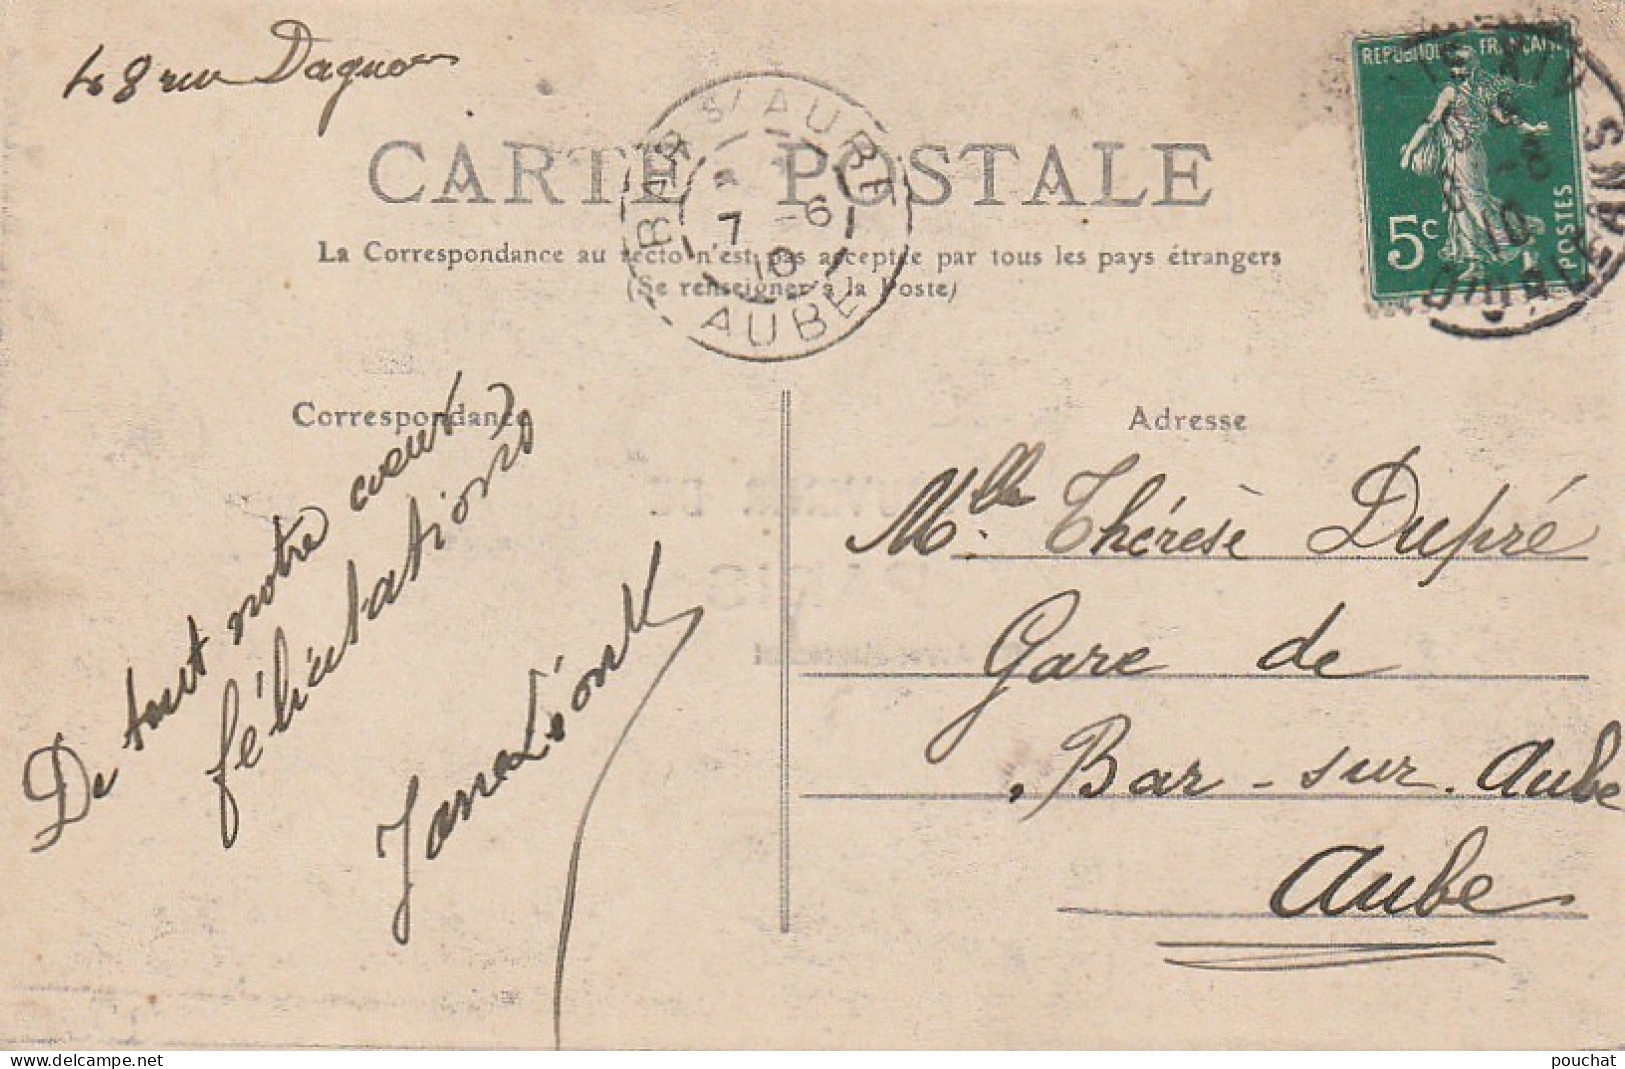 48 rue Dagno
CARTE POSTALE
La Correspondance au recto n'est pas acceptée par tous les pays étrangers
(Se renseigner à la Poste)
BAR-S/AUBE
7 -6
10
AUBE
REPUBLIQUE FRANÇAISE
5c
POSTES
Correspondance
De tout notre cœur
félicitations
Adresse
Mlle Thérèse Dupré
Gare de
Bar-sur-Aube
Aube
pouchat